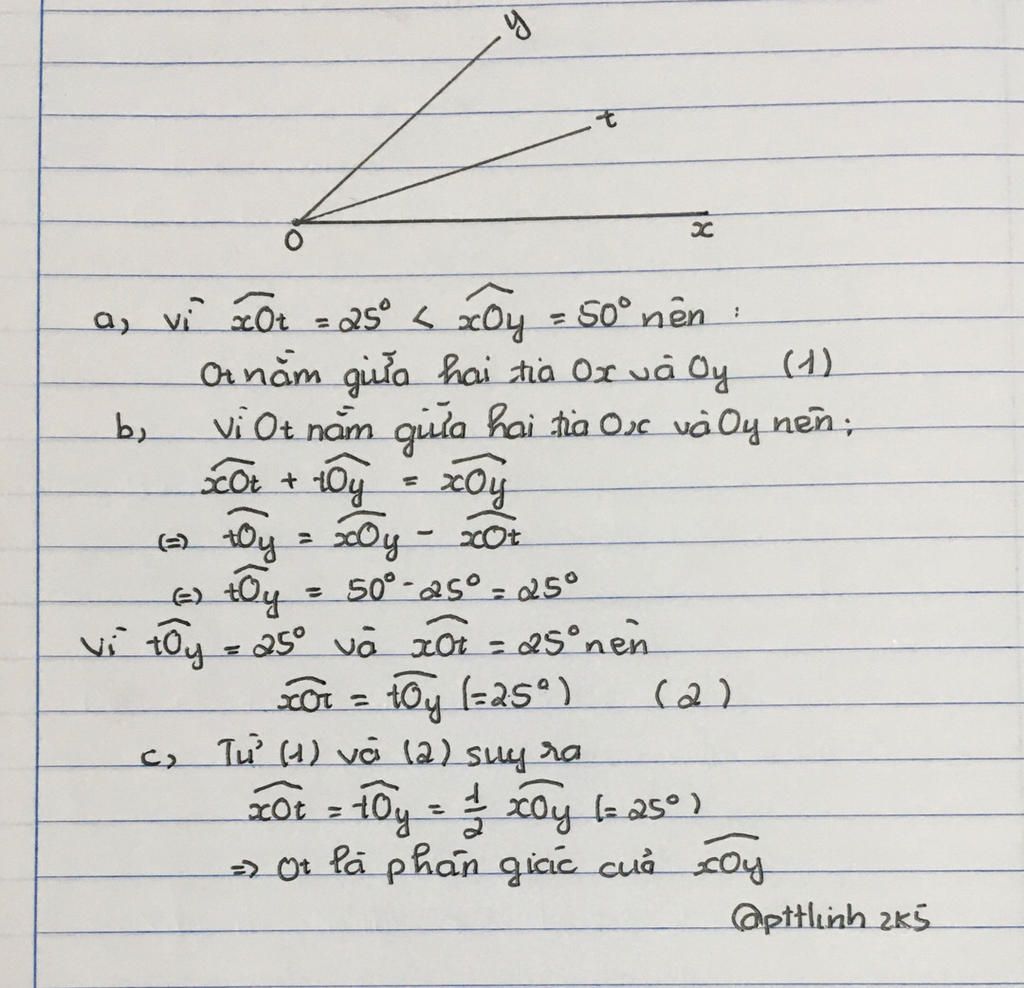 y
t
O
x
a, vì x̂Ot = 25° < x̂Oy = 50° nên :
Ot nằm giữa hai tia Ox và Oy (1)
b, vì Ot nằm giữa hai tia Ox và Oy nên ;
x̂Ot + t̂Oy = x̂Oy
(=) t̂Oy = x̂Oy - x̂Ot
(=) t̂Oy = 50° - 25° = 25°
vì t̂Oy = 25° và x̂Ot = 25° nên
x̂Ot = t̂Oy (=25°) (2)
c, Từ (1) và (2) suy ra
x̂Ot = t̂Oy = 1/2 x̂Oy (= 25°)
=> Ot là phân giác của x̂Oy
@pttlinh 2K5